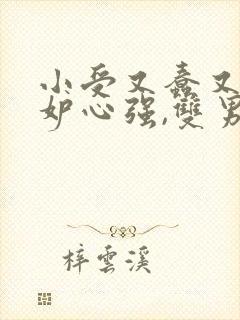 小受又蠢又
妒心强,雙男
梓雲溪